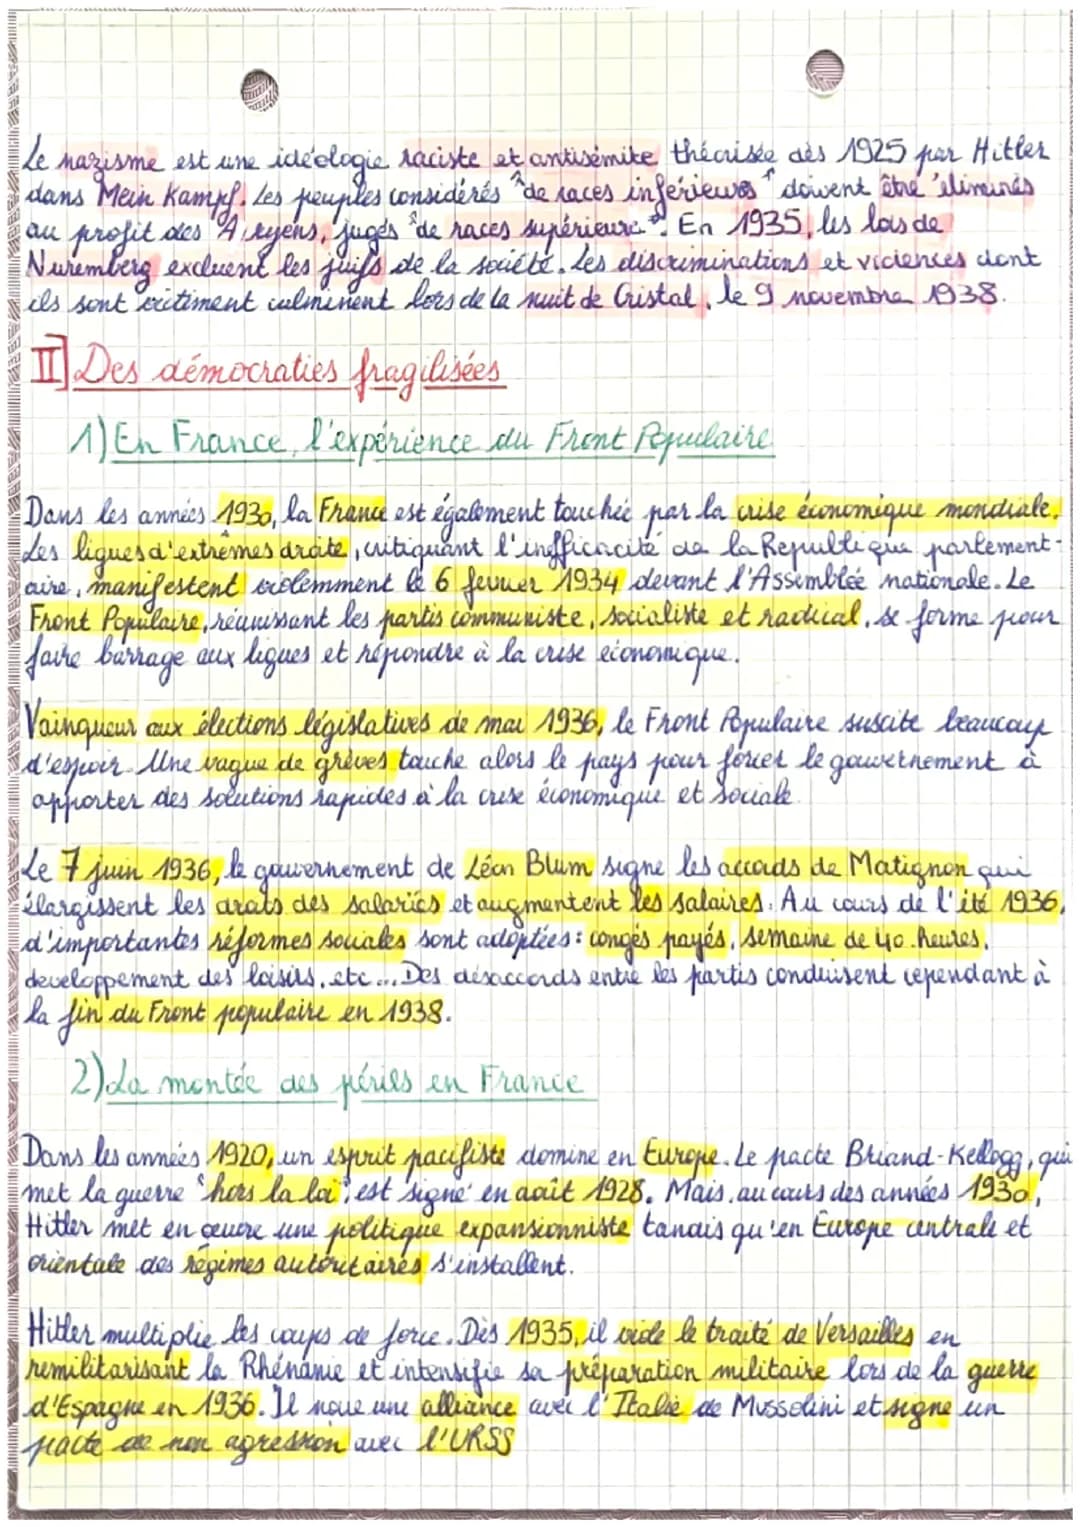 Le nazisme est une idéologie raciste et antisémite théorisée dès 1925 par Hitler
dans Mein Kampf. Les peuples considérés "de races inférieures" doivent être éliminés
au profit des Aryens, jugés "de races supérieure". En 1935, les lois de
Nuremberg excluent les juifs de la société. Les discriminations et violences dont
ils sont victiment culminent lors de la nuit de Cristal, le 9 novembre 1938.
II] Des démocraties fragilisées
1) En France, l'expérience du Front Populaire
Dans les années 1930, la France est également touchée par la crise économique mondiale.
Les ligues d'extrêmes droite, critiquant l'inefficacité de la Republique parlement-
aire, manifestent violemment le 6 fevrier 1934 devant l'Assemblée nationale. Le
Front Populaire, réunissant les partis communiste, socialiste et radical, se forme pour
faire barrage aux ligues et répondre à la crise économique.
Vainqueur aux élections législatives de mai 1936, le Front Populaire suscite beaucoup
d'espoir. Une vague de grèves touche alors le pays pour forcer le gouvernement à
apporter des solutions rapides à la crise économique et sociale.
Le 7 juin 1936, le gouvernement de Léon Blum signe les accords de Matignon qui
élargissent les droits des salariés et augmentent les salaires. Au cours de l'été 1936,
d'importantes réformes sociales sont adoptées : congés payés, semaine de 40 heures,
developpement des loisirs, etc... Des désaccords entre les partis conduisent cependant à
la fin du Front populaire en 1938.
2) La montée des périls en France
Dans les années 1920, un esprit pacifiste domine en Europe. Le pacte Briand-Kellogg, qui
met la guerre "hors la loi", est signé en août 1928. Mais, au cours des années 1930,
Hitler met en œuvre une politique expansionniste tandis qu'en Europe centrale et
orientale des régimes autoritaires s'installent.
Hitler multiplie les coups de force. Dès 1935, il viole le traité de Versailles en
remilitarisant la Rhénanie et intensifie sa préparation militaire lors de la guerre
d'Espagne en 1936. Il noue une alliance avec l'Italie de Mussolini et signe un
pacte de non agression avec l'URSS